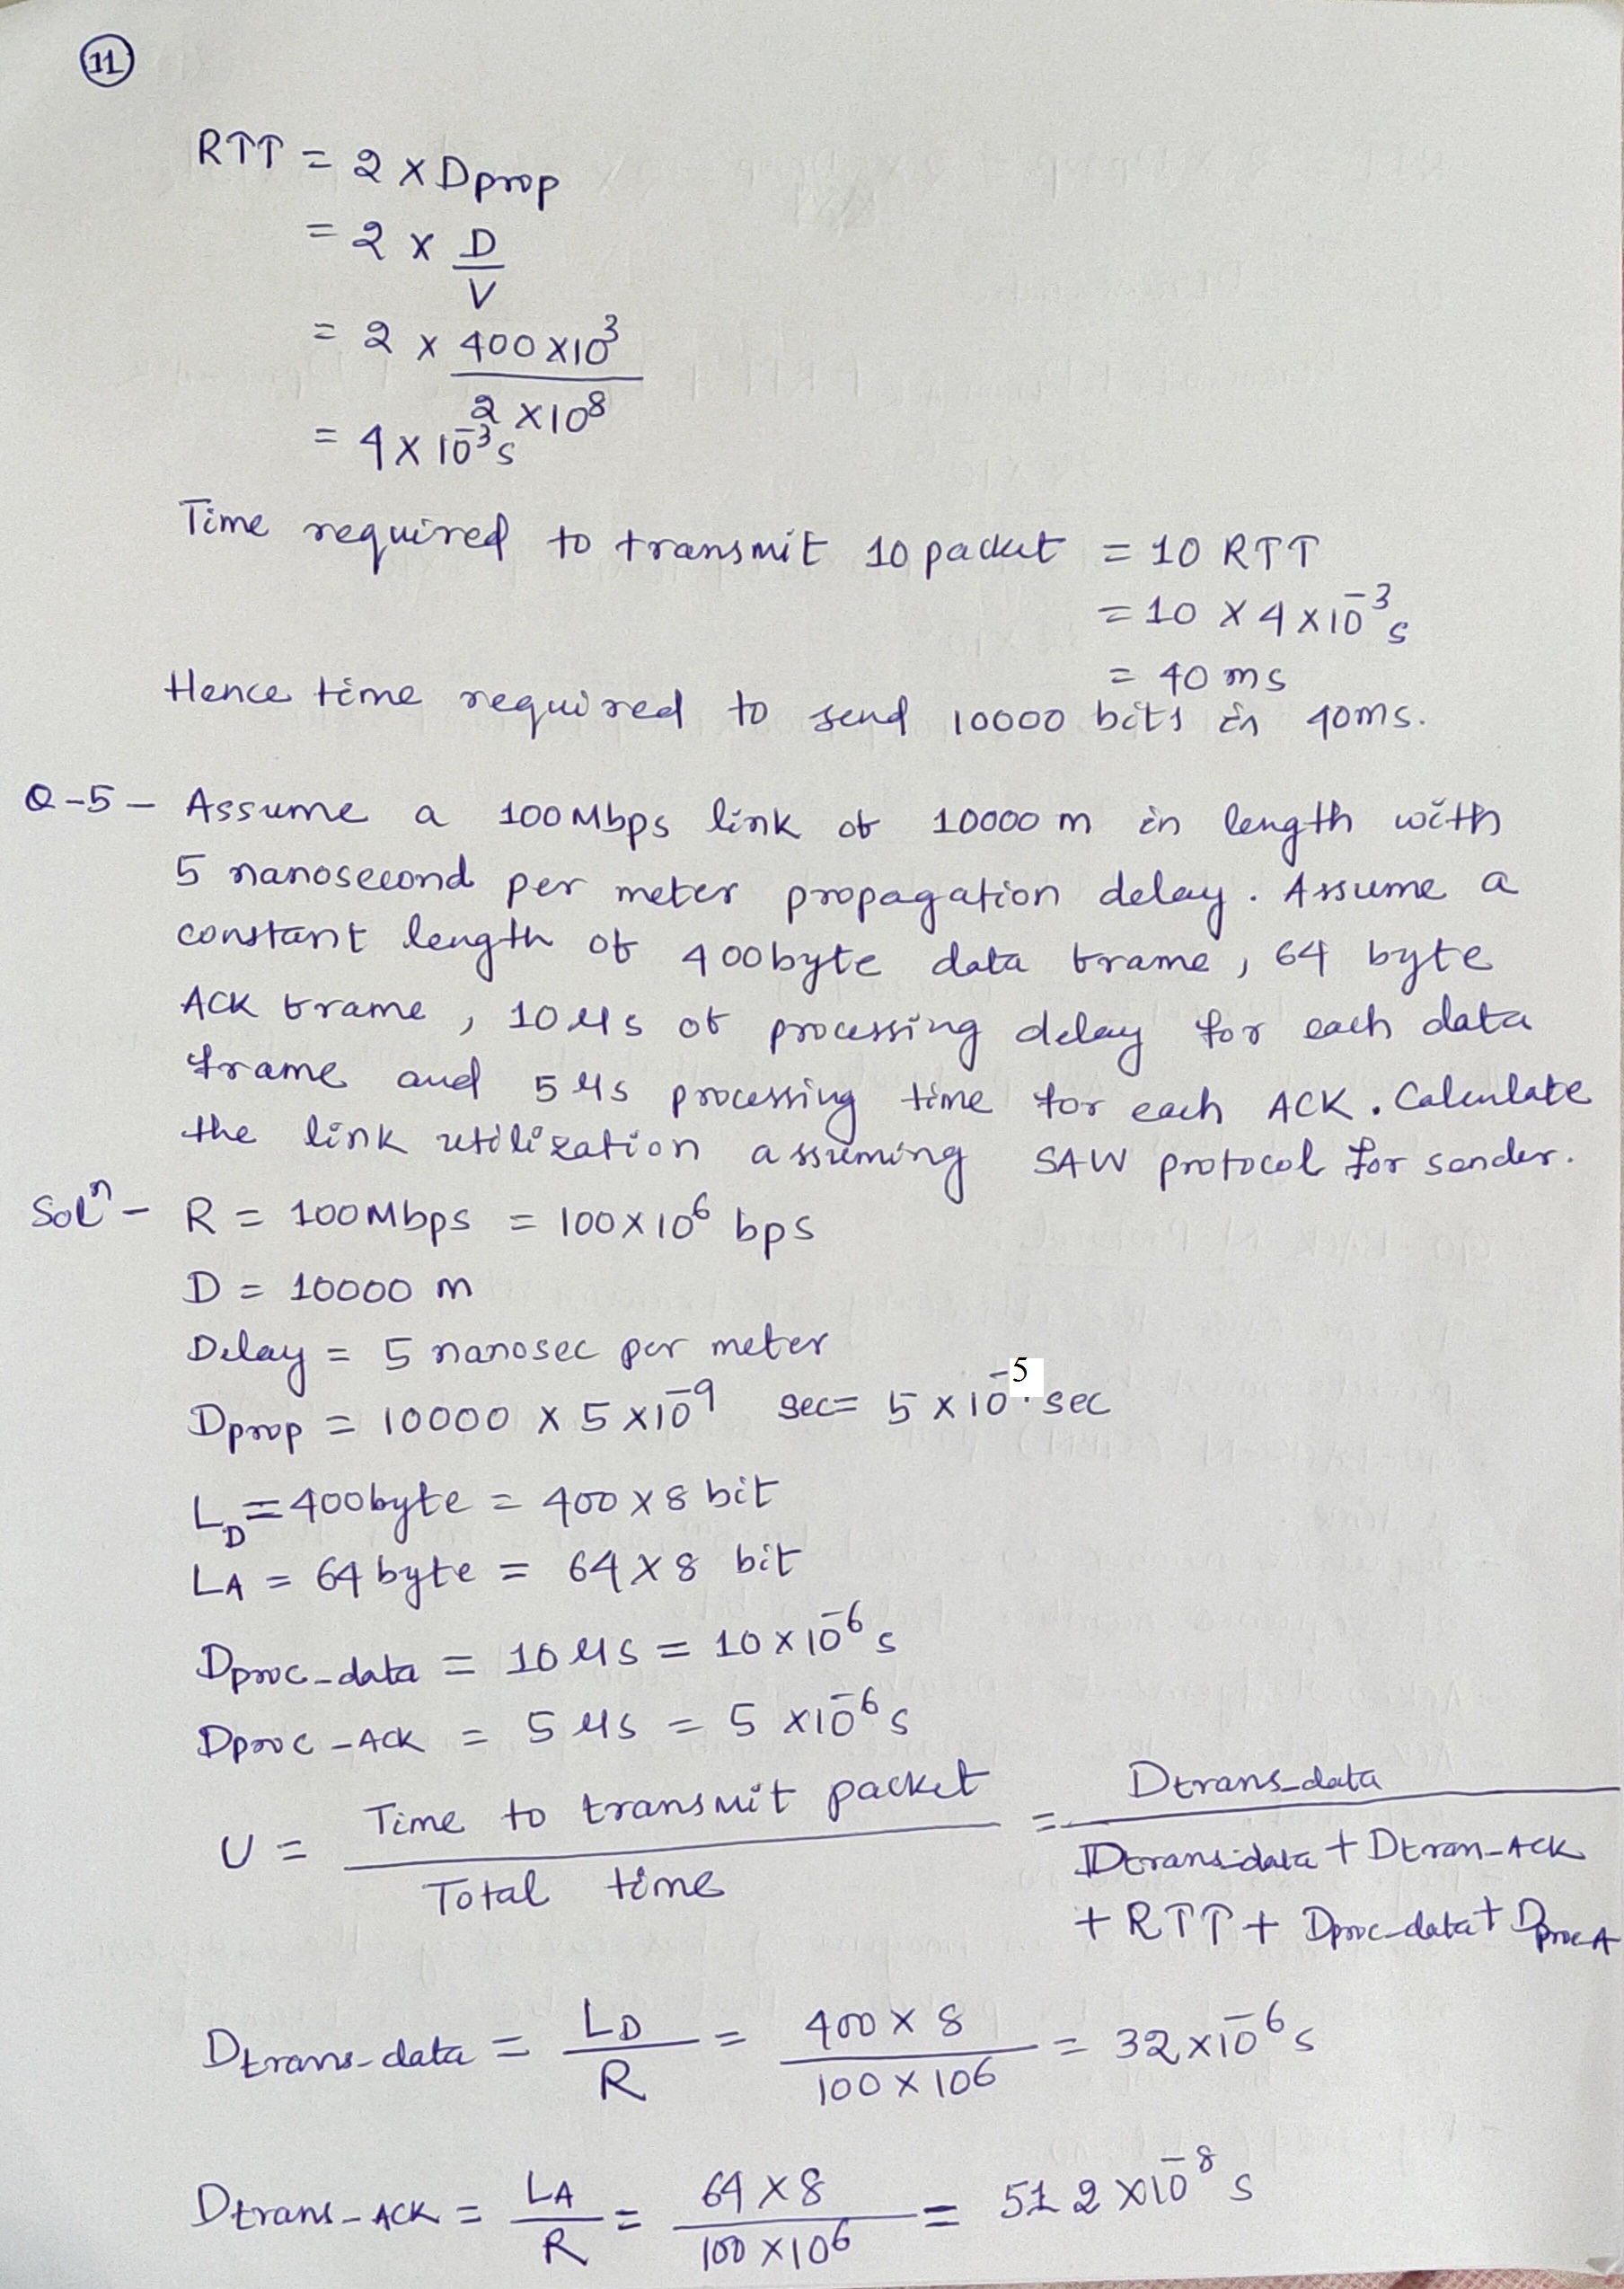 11
RTT = 2 × Dprop
= 2 × D/V
= 2 × 400×10³ / 2×10⁸
= 4×10⁻³s
Time required to transmit 10 packet = 10 RTT
= 10 × 4×10⁻³s
= 40 ms
Hence time required to send 10000 bits is 40ms.
Q-5 - Assume a 100Mbps link of 10000 m in length with
5 nanosecond per meter propagation delay. Assume a
constant length of 400byte data frame, 64 byte
ACK frame, 10 μs of processing delay for each data
frame and 5 μs processing time for each ACK. Calculate
the link utilization assuming SAW protocol for sender.
Solⁿ - R = 100Mbps = 100×10⁶ bps
D = 10000 m
Delay = 5 nanosec per meter
Dprop = 10000 × 5×10⁻⁹ sec = 5×10⁻⁵ sec
L_D = 400byte = 400×8 bit
L_A = 64byte = 64×8 bit
Dproc-data = 10 μs = 10×10⁻⁶ s
Dproc-ACK = 5 μs = 5×10⁻⁶ s
U = Time to transmit packet / Total time = Dtrans-data / Dtrans-data + Dtran-ACK
+ RTT + Dproc-data + DprocA
Dtrans-data = L_D/R = 400×8 / 100×10⁶ = 32×10⁻⁶ s
Dtrans-ACK = L_A/R = 64×8 / 100×10⁶ = 512×10⁻⁸ s